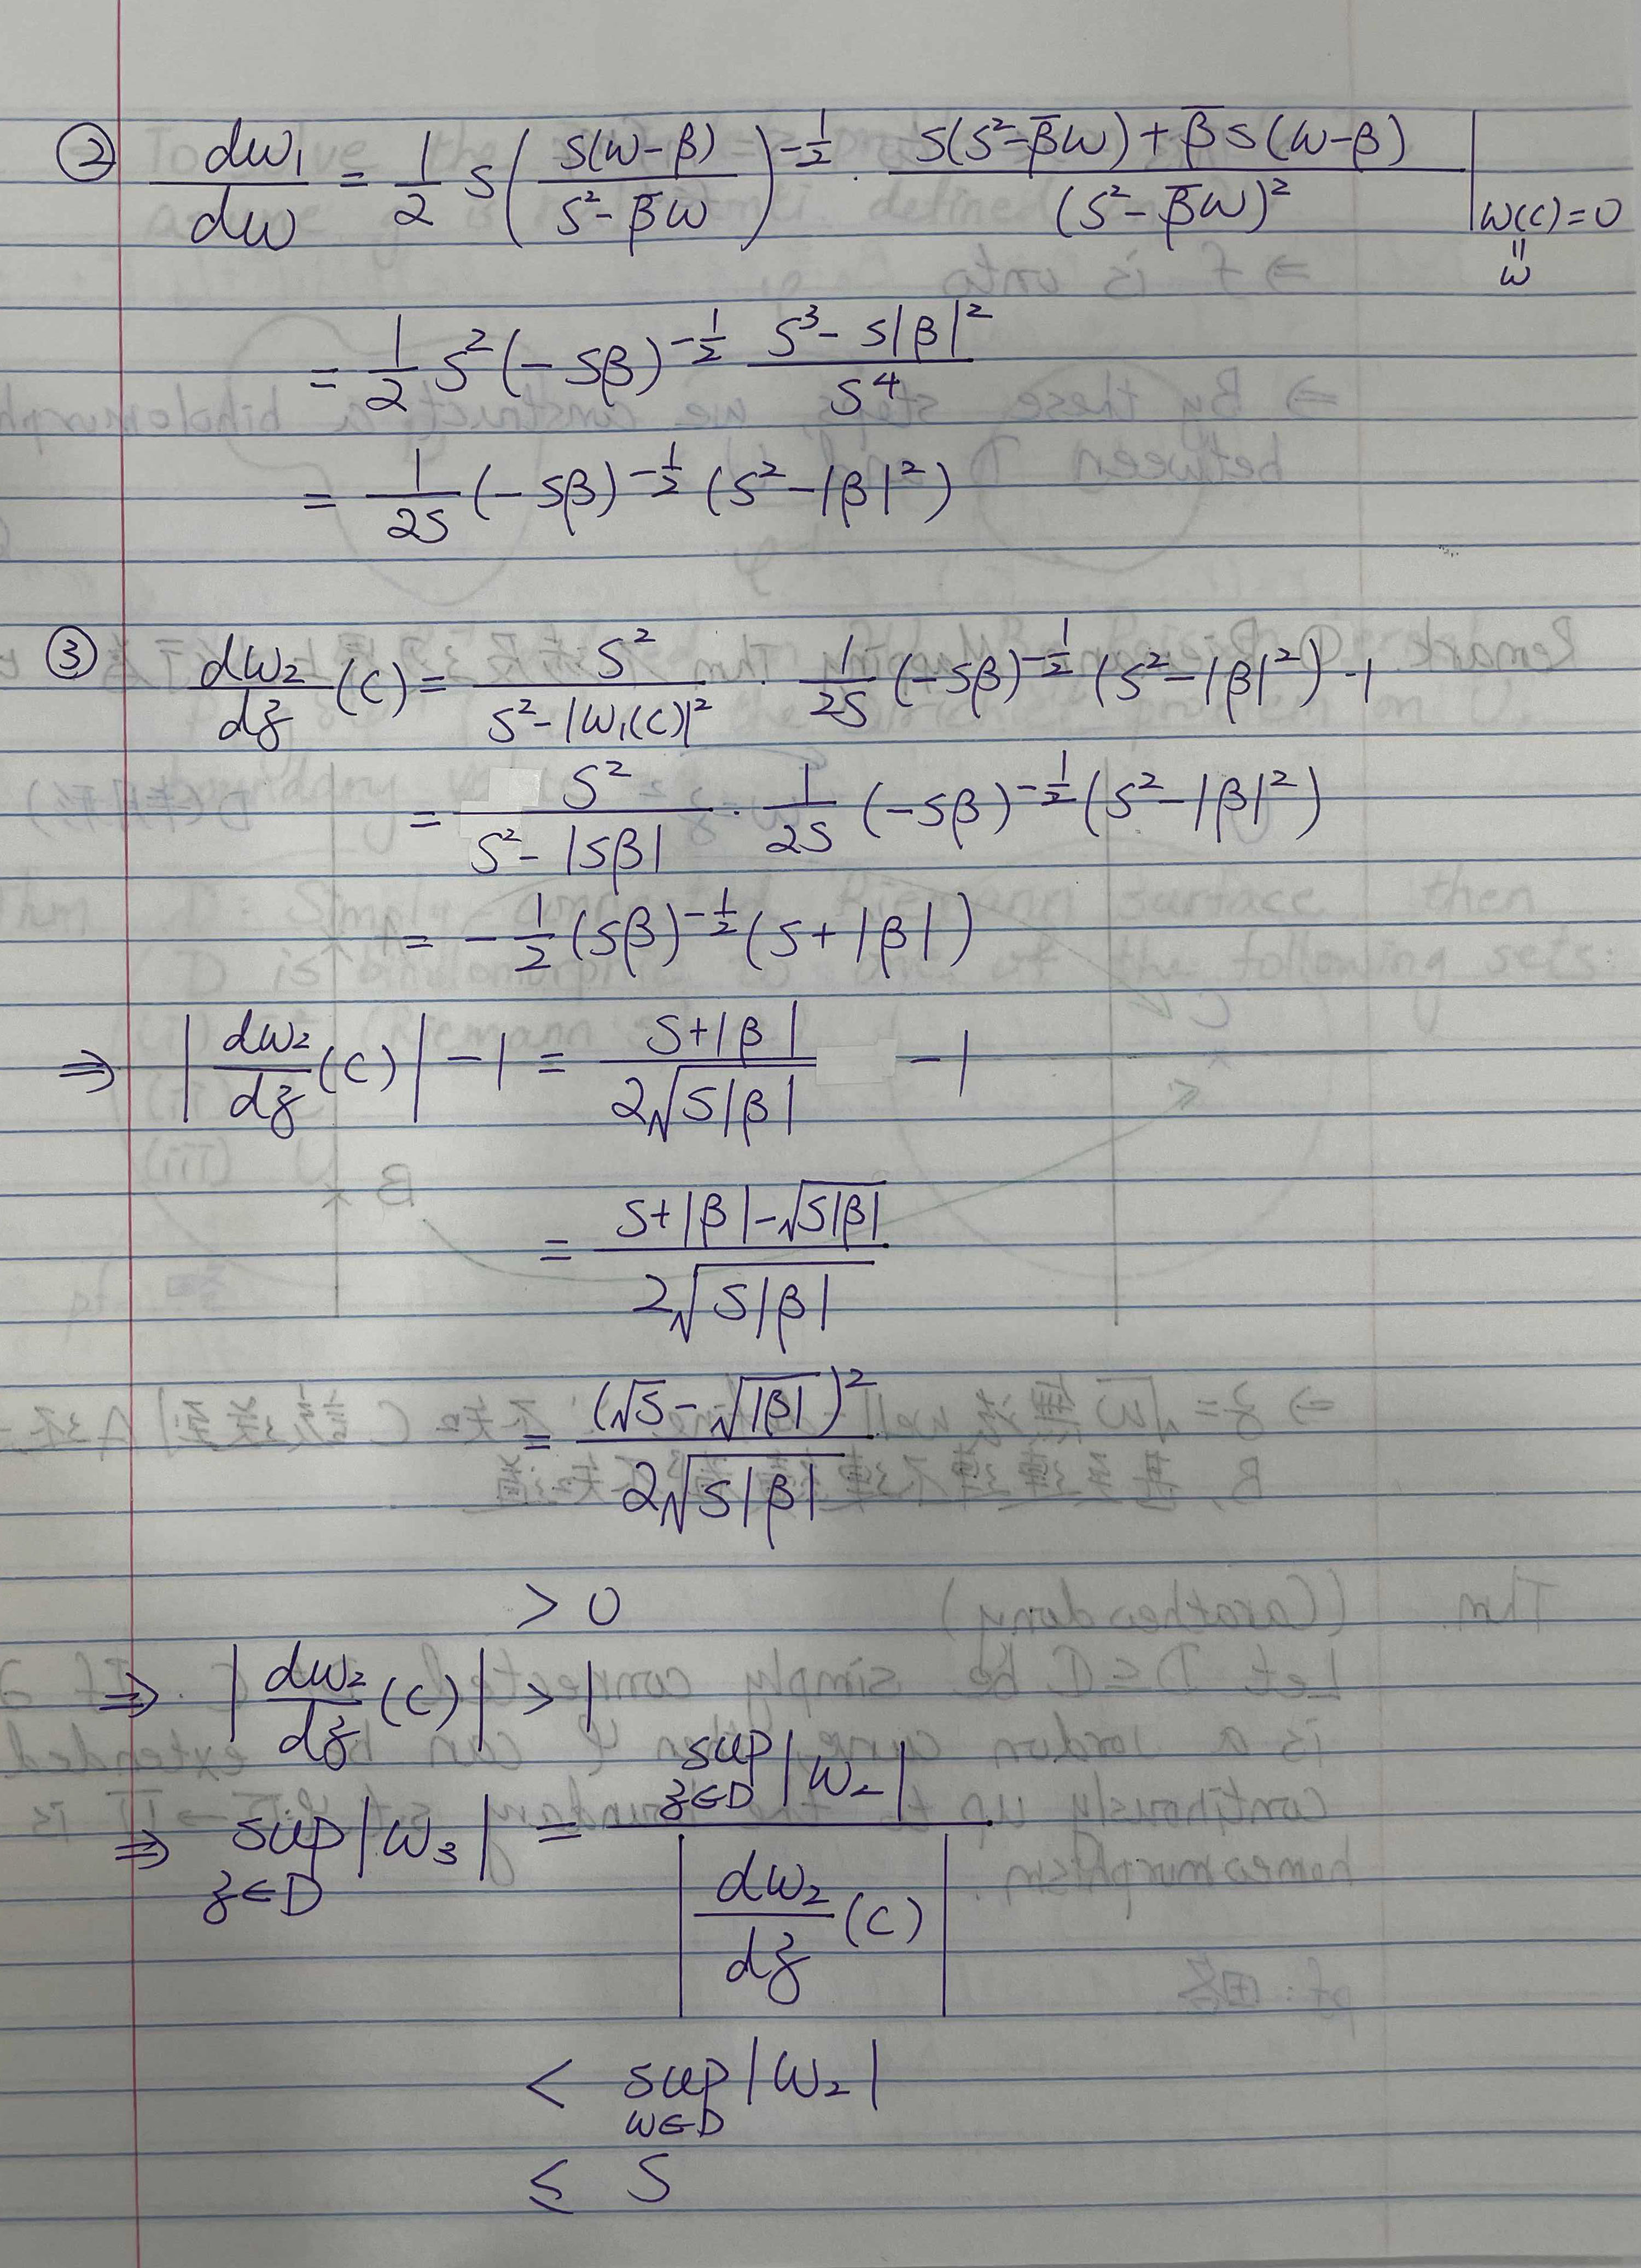 ② dw₁/dw = 1/2 S (S(w-β)/(S²-β̄w))^(-1/2) · (S(S²-β̄w)+β̄S(w-β))/(S²-β̄w)² |_(w(c)=0)
‖
w
= 1/2 S² (-Sβ)^(-1/2) (S³-S|β|²)/S⁴
= 1/(2S) (-Sβ)^(-1/2) (S²-|β|²)
③ dw₂/dz (c) = S²/(S²-|w₁(c)|²) · 1/(2S) (-Sβ)^(-1/2) (S²-|β|²) · 1
= S²/(S²-|Sβ|) · 1/(2S) (-Sβ)^(-1/2) (S²-|β|²)
= -1/2 (Sβ)^(-1/2) (S+|β|)
⇒ |dw₂/dz (c)| - 1 = (S+|β|)/(2√(S|β|)) - 1
= (S+|β|-√(S|β|))/(2√(S|β|))
= (√S-√|β|)²/(2√(S|β|))
> 0
⇒ |dw₂/dz (c)| > 1
⇒ sup_(z∈D) |w₃| = sup_(z∈D) |w₂| / |dw₂/dz (c)|
< sup_(w∈D) |w₂|
≤ S